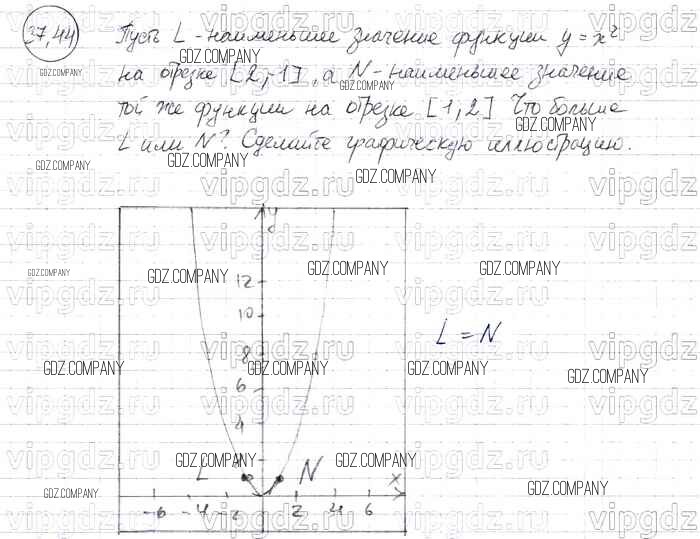 37,44
Пусть L - наименьшее значение функции y = x²
на отрезке [2; -1], а N - наименьшее значение
той же функции на отрезке [1, 2] Что больше
L или N? Сделайте графическую иллюстрацию.
y
12
10
8
6
4
L = N
L N x
-6 -4 -2 2 4 6
GDZ.COMPANY
vipgdz.ru